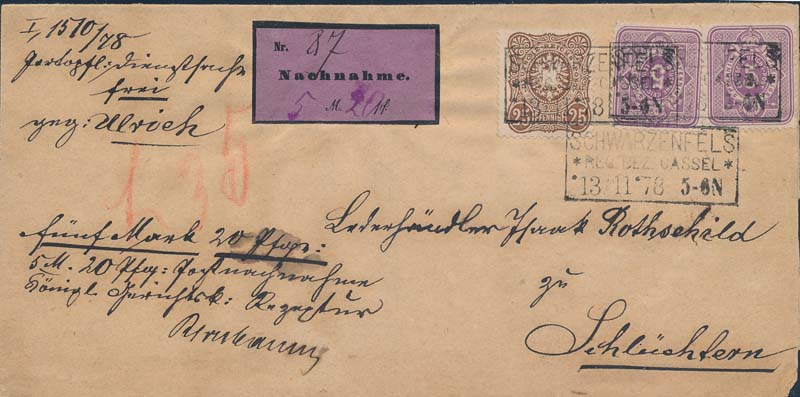 I, 1570/78
Portopfl: Dienstsache
frei
geg: Ulrich
Nr. 87
Nachnahme.
5 M. 20 Pf.
25 PFENNIG 25
SCHWARZENFELS
* REG. BEZ. CASSEL *
13 11 78 5-6N
fünf Mark 20 Pfge:
5 M. 20 Pfg: Postnachnahme
Königl. Gerichtsk: Rezeptur
Lederhändler Isaak Rothschild
zu
Schlüchtern